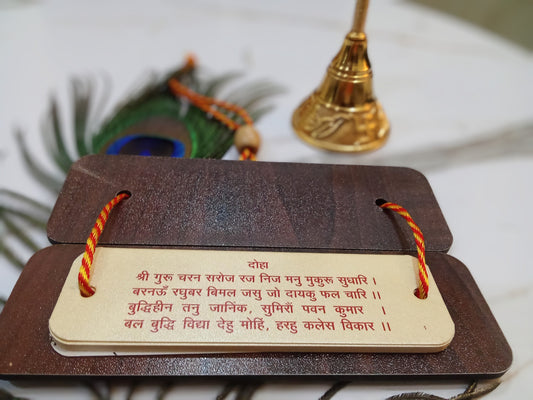 दोहा
श्री गुरू चरन सरोज रज निज मनु मुकुरू सुधारि ।
बरनऊँ रघुबर बिमल जसु जो दायकु फल चारि ।।
बुद्धिहीन तनु जानिक, सुमिरौं पवन कुमार ।
बल बुद्धि विद्या देहु मोहिं, हरहु कलेस विकार ।।